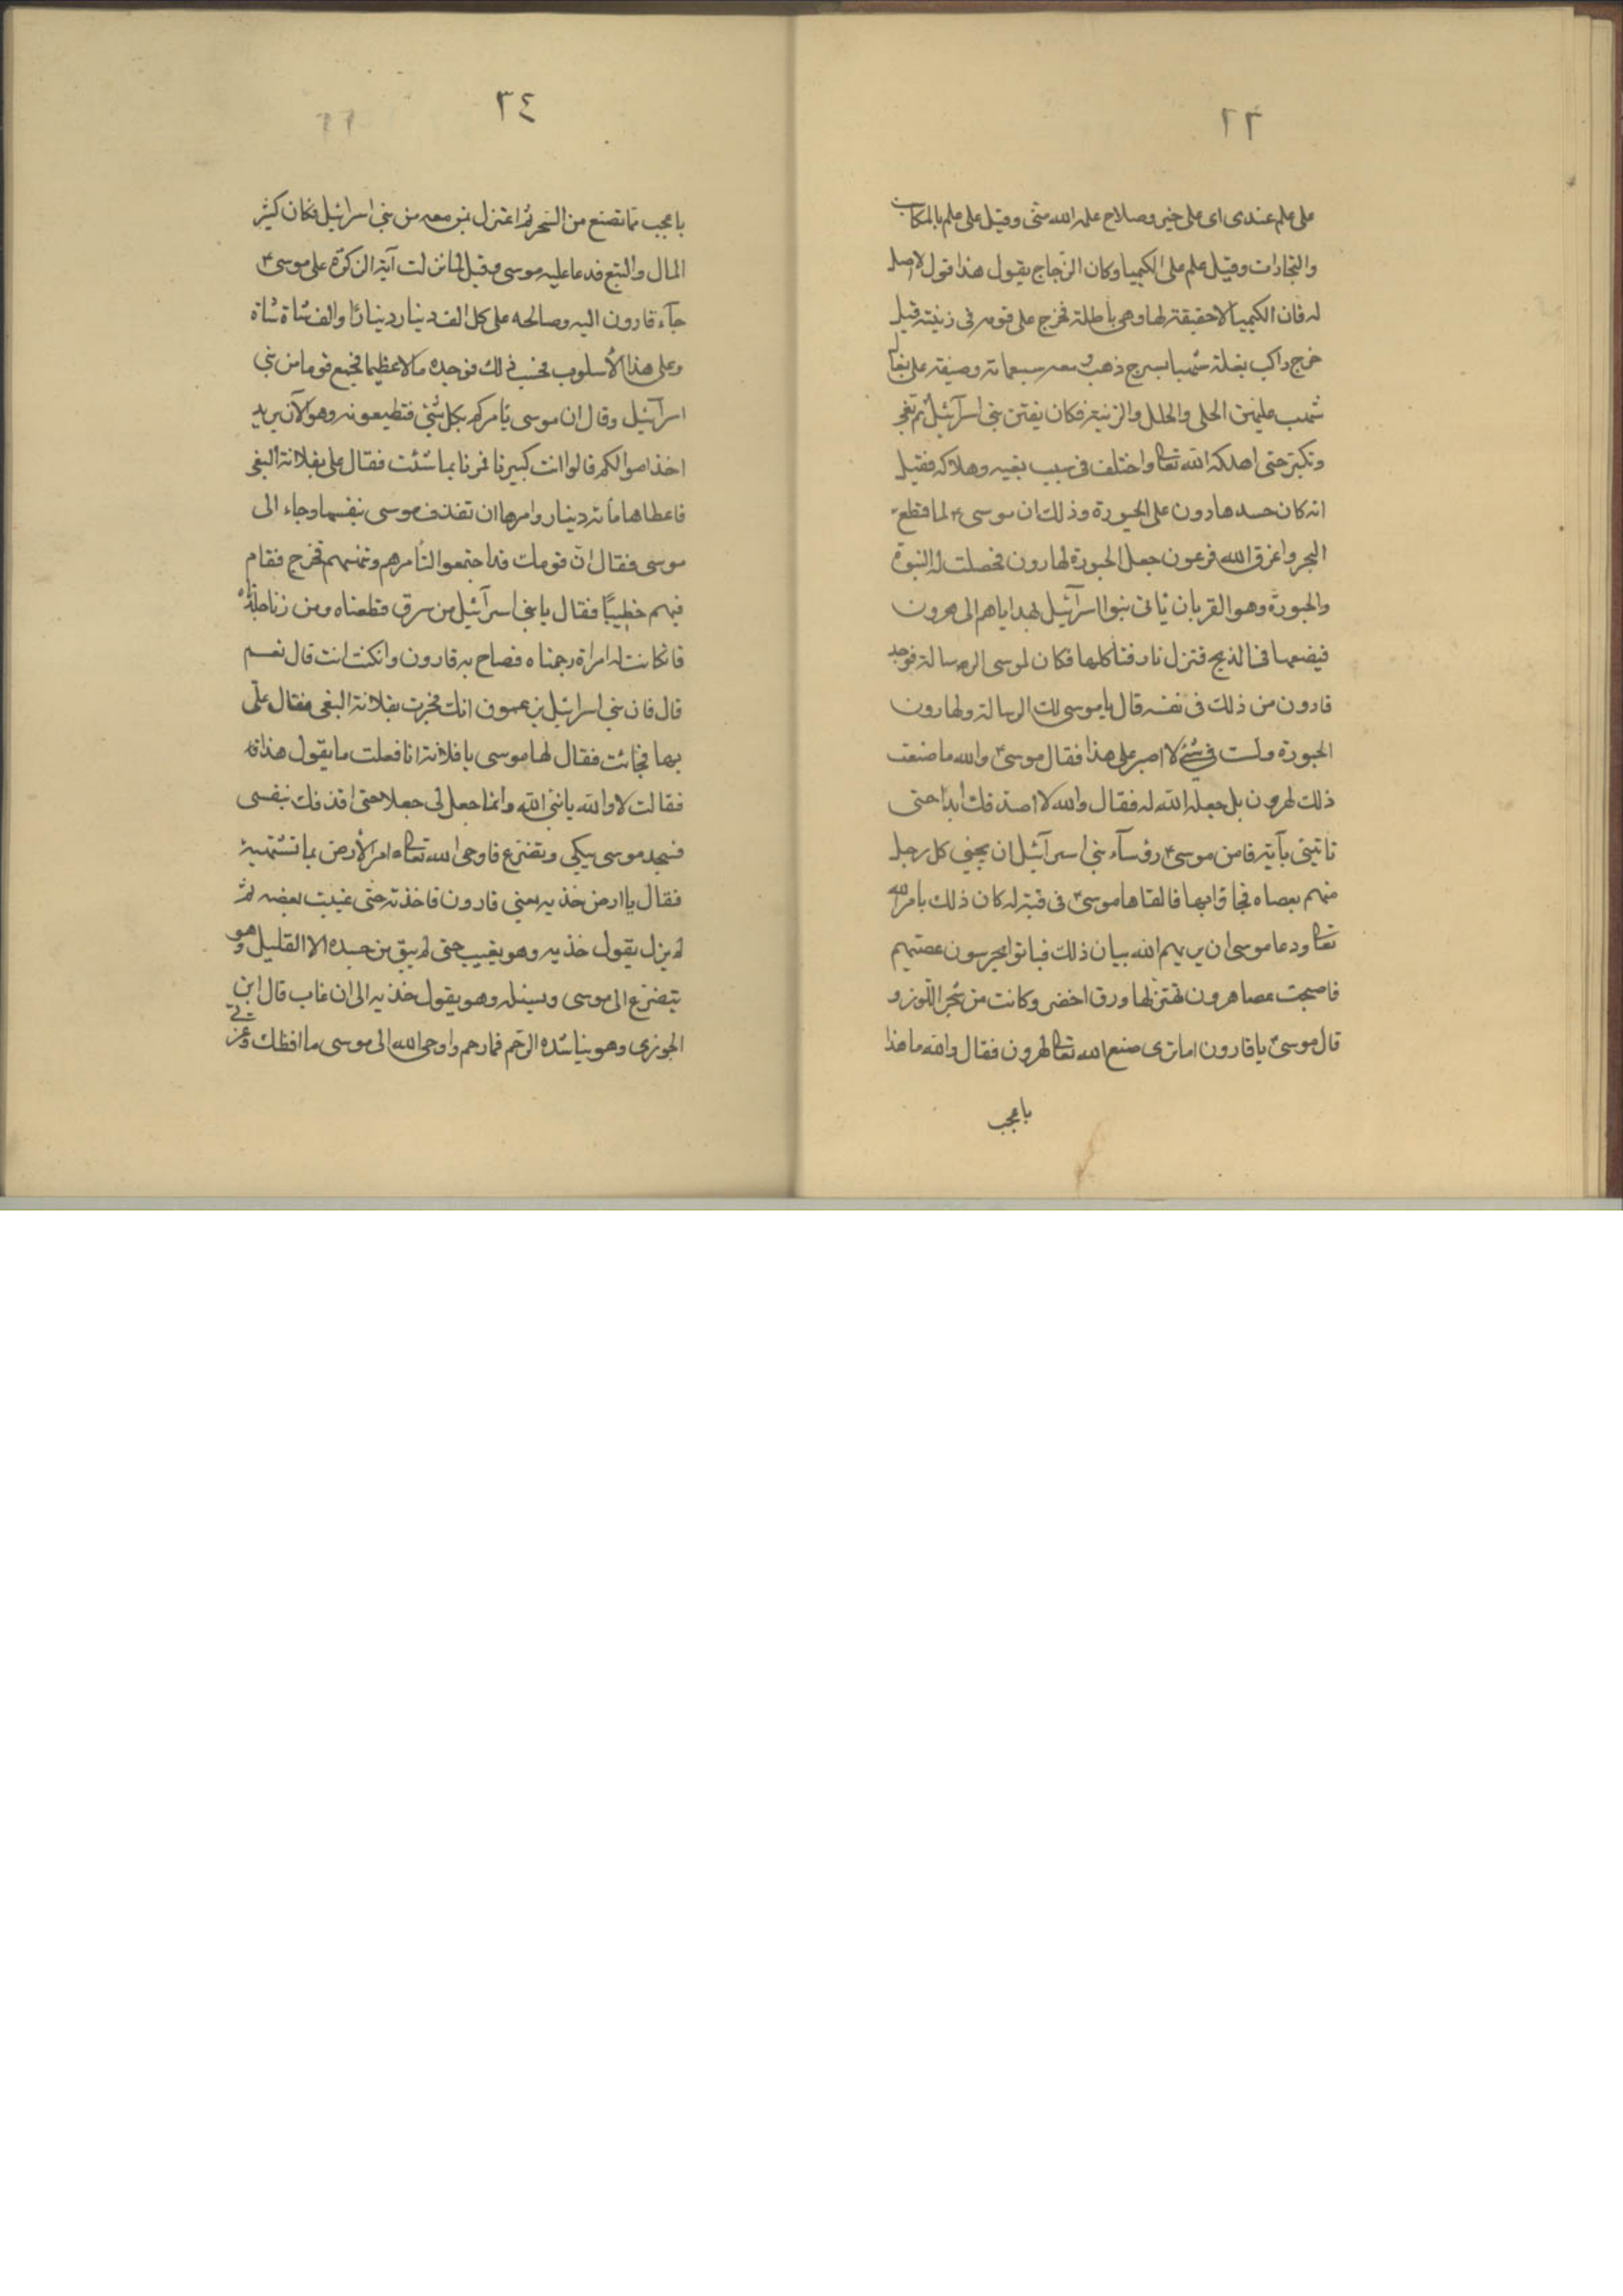 ٢٣
على علم عندى اى على خير وصلاح علمه الله منى وقيل على علم بالمكاسب
والتجارات وقيل علم على الكيميا وكان الزجاج يقول هذا قول لا اصل
له فان الكيميا لا حقيقة لها وهى باطلة فخرج على قومه فى زينته قيل
خرج راكب بغلة شهبا بسرج ذهب ومعه سبعمائة وصيفة على بغال
شهب عليهن الحلى والحلل والزينة فكان يفتن بنى اسرآئيل ثم تفجر
وتكبر حتى اهلكه الله تعا واختلف فى سبب بغيه وهلاكه فقيل
انه كان حسد هارون على الحبورة وذلك ان موسى ء لما قطع
البحر واغرق الله فرعون جعل الحبورة لهارون فحصلت له النبوة
والحبورة وهو القربان ثانى بنوا اسرآئيل بهداياهم الى هرون
فيضعها فى المذبح فتنزل نار فتأكلها فكان لموسى الرسالة فوجد
قارون من ذلك فى نفسه قال يا موسى لك الرسالة ولهارون
الحبورة ولست فى شئ لا اصبر على هذا فقال موسى ء والله ما صنعت
ذلك لهرون بل جعله الله له فقال والله لا اصدقك ابدا حتى
تاتينى بآية فامن موسى ء رؤسآء بنى اسرآئيل ان يجئ كل رجل
منهم بعصاه فجاؤا بها فالقاها موسى ء فى قبة له كان ذلك بامر الله
تعا ودعا موسى ان يريهم الله بيان ذلك فباتوا يحرسون عصيهم
فاصبحت عصا هرون تهتز لها ورق اخضر وكانت من شجر اللوز و
قال موسى ء يا قارون اما ترى صنع الله تعا لهرون فقال والله ما هذا
باعجب
٣٤
باعجب مما تصنع من السحر ثم اعتزل بمن معه من بنى اسرائيل فكان كثير
المال والتبع فدعا عليه موسى وقيل لما نزلت آية الزكوة على موسى ء
جآء قارون اليه وصالحه على كل الف دينار دينارًا والف شاة شاة
وعلى هذا الأسلوب فحسب ذلك فوجده مالا عظيما فجمع قوما من بنى
اسرآئيل وقال ان موسى يامركم بكل شئ فتطيعونه وهو الآن يريد
اخذ اموالكم قالوا انت كبيرنا فمرنا بما شئت فقال على بفلانة البغى
فاعطاها مأئة دينار وامرها ان تقذف موسى بنفسها وجاء الى
موسى فقال ان قومك قد اجتمعوا لتأمرهم وتنههم فخرج فقام
فيهم خطيبًا فقال يا بنى اسرآئيل من سرق قطعناه ومن زنا جلدناه
فان كانت له امراة رجمناه فصاح به قارون وان كنت انت قال نعم
قال فان بنى اسرائيل يزعمون انك فجرت بفلانة البغى فقال علّى
بها فجائت فقال لها موسى يا فلانة انا فعلت ما يقول هذا
فقالت لا والله يا نبى الله وانما جعل لى جعلا حتى اقذفك بنفسى
فسجد موسى يبكى ويتضرع فاوحى الله تعا مر الأرض بما تشتهيه
فقال يا ارض خذيه يعنى قارون فاخذته حتى غيبت بعضه ثم
لم يزل يقول خذيه وهو يغيب حتى لم يبق من جسده الا القليل وهو
يتضرع الى موسى ويسئله وهو يقول خذيه الى ان غاب قال ابن
الجوزى وهو يناشده الرحم فما رحم واوحى الله الى موسى ما افظك وعزتى